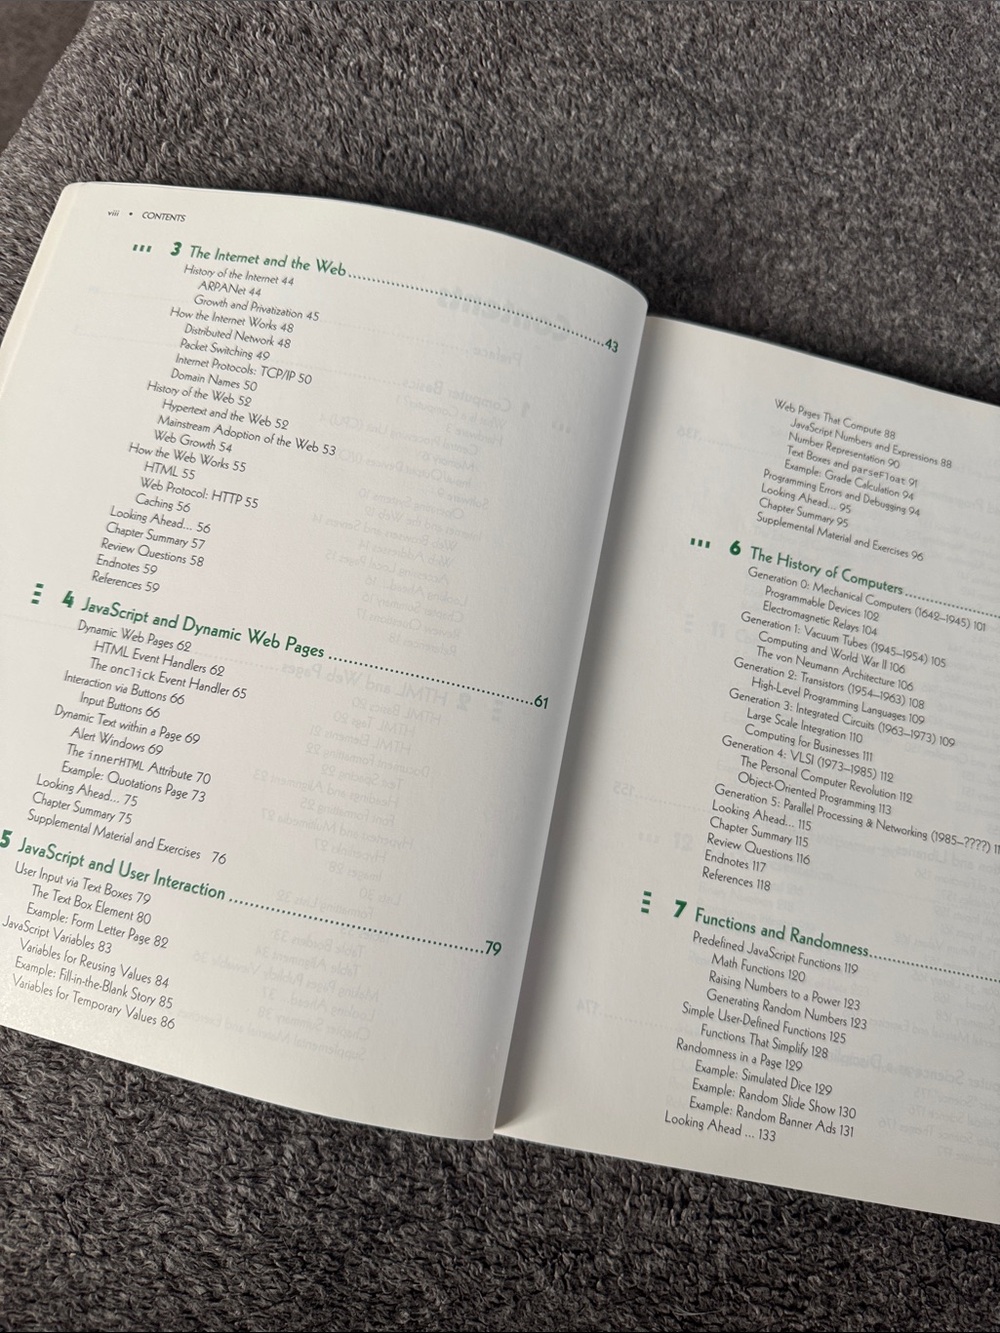 viii • CONTENTS
3 The Internet and the Web 43
History of the Internet 44
ARPANet 44
Growth and Privatization 45
How the Internet Works 48
Distributed Network 48
Packet Switching 49
Internet Protocols: TCP/IP 50
Domain Names 50
History of the Web 52
Hypertext and the Web 52
Mainstream Adoption of the Web 53
Web Growth 54
How the Web Works 55
HTML 55
Web Protocol: HTTP 55
Caching 56
Looking Ahead... 56
Chapter Summary 57
Review Questions 58
Endnotes 59
References 59
4 JavaScript and Dynamic Web Pages 61
Dynamic Web Pages 62
HTML Event Handlers 62
The onclick Event Handler 65
Interaction via Buttons 66
Input Buttons 66
Dynamic Text within a Page 69
Alert Windows 69
The innerHTML Attribute 70
Example: Quotations Page 73
Looking Ahead... 75
Chapter Summary 75
Supplemental Material and Exercises 76
5 JavaScript and User Interaction 79
User Input via Text Boxes 79
The Text Box Element 80
Example: Form Letter Page 82
JavaScript Variables 83
Variables for Reusing Values 84
Example: Fill-in-the-Blank Story 85
Variables for Temporary Values 86
Web Pages That Compute 88
JavaScript Numbers and Expressions 88
Number Representation 90
Text Boxes and parseFloat 91
Example: Grade Calculation 94
Programming Errors and Debugging 94
Looking Ahead... 95
Chapter Summary 95
Supplemental Material and Exercises 96
6 The History of Computers
Generation 0: Mechanical Computers (1642–1945) 101
Programmable Devices 102
Electromagnetic Relays 104
Generation 1: Vacuum Tubes (1945–1954) 105
Computing and World War II 106
The von Neumann Architecture 106
Generation 2: Transistors (1954–1963) 108
High-Level Programming Languages 109
Generation 3: Integrated Circuits (1963–1973) 109
Large Scale Integration 110
Computing for Businesses 111
Generation 4: VLSI (1973–1985) 112
The Personal Computer Revolution 112
Object-Oriented Programming 113
Generation 5: Parallel Processing & Networking (1985–????)
Looking Ahead... 115
Chapter Summary 115
Review Questions 116
Endnotes 117
References 118
7 Functions and Randomness
Predefined JavaScript Functions 119
Math Functions 120
Raising Numbers to a Power 123
Generating Random Numbers 123
Simple User-Defined Functions 125
Functions That Simplify 128
Randomness in a Page 129
Example: Simulated Dice 129
Example: Random Slide Show 130
Example: Random Banner Ads 131
Looking Ahead ... 133